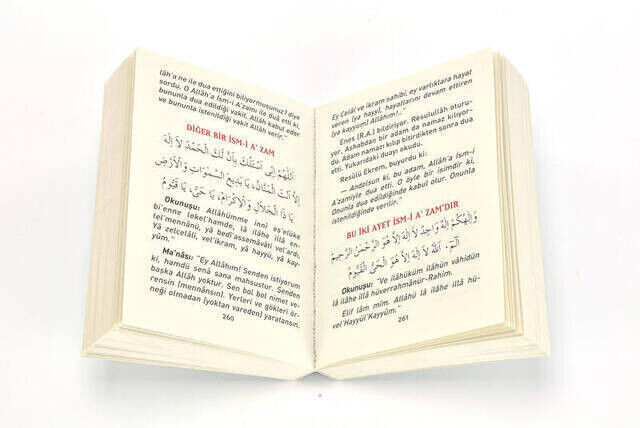 lâh'a ne ile dua ettiğini biliyormusunuz? diye
sordu. O Allâh'a İsm-i A'zamı ile dua etti ki,
bununla dua edildiği vakit, Allâh kabul eder
ve bununla istenildiği vakit Allâh verir."
DİĞER BİR İSM-İ A' ZAM
اَللّٰهُمَّ اِنِّى اَسْئَلُكَ بِاَنَّ لَكَ الْحَمْدَ لاَ اِلٰهَ
اِلاَّ اَنْتَ الْمَنَّانُ، يَا بَدِيعَ السَّمٰوَاتِ وَاْلاَرْضِ
يَا ذَا الْجَلاَلِ وَاْلاِكْرَامِ، يَا حَىُّ، يَا قَيُّومُ
Okunuşu: "Allâhümme innî es'elüke
bi'enne lekel'hamde, lâ ilâhe illâ en-
tel'mennânü, yâ bedî'assemâvâti vel'ardı,
yâ zelcelâli, vel'ikram, yâ hayyü, yâ kay-
yûm."
Ma'nâsı: "Ey Allâhım! Senden istiyorum
ki, hamdü senâ sana mahsustur. Senden
başka Allâh yoktur. Sen bol bol nimet ve-
rensin (mennânsın). Yerleri ve gökleri ör-
neği olmadan (yoktan vareden) yaratansın.
260
Ey Celâl ve ikram sahibi, ey varlıklara hayat
veren (ya hayyı), hayatlarını devam ettiren
(ya kayyum) Allâhım!.."
Enes (R.A.) bildiriyor. Resulullah oturu-
yor. Ashabdan bir adam da namaz kılıyor-
du. Adam namazı kılıp bitirdikten sonra dua
etti. Yukarıdaki duayı okudu.
Resûlü Ekrem, buyurdu ki:
— Andolsun ki, bu adam, Allâh'a İsm-i
A'zamiyle dua etti. O öyle bir isimdir ki,
Onunla dua edildiğinde kabul olur. Onunla
istenildiğinde verilir."
BU İKİ AYET İSM-İ A' ZAM'DIR
وَاِلٰهُكُمْ اِلٰهٌ وَاحِدٌ لاَ اِلٰهَ اِلاَّ هُوَ الرَّحْمٰنُ الرَّحِيمُ
الٓمٓ. اَللّٰهُ لاَ اِلٰهَ اِلاَّ هُوَ الْحَىُّ الْقَيُّومُ
Okunuşu: "Ve ilâhüküm ilâhün vâhidün
lâ ilâhe illâ hüverrahmânür-Rahim.
Elif lâm mîm. Allâhü lâ ilâhe illâ hü-
vel'Hayyül'Kayyûm."
261